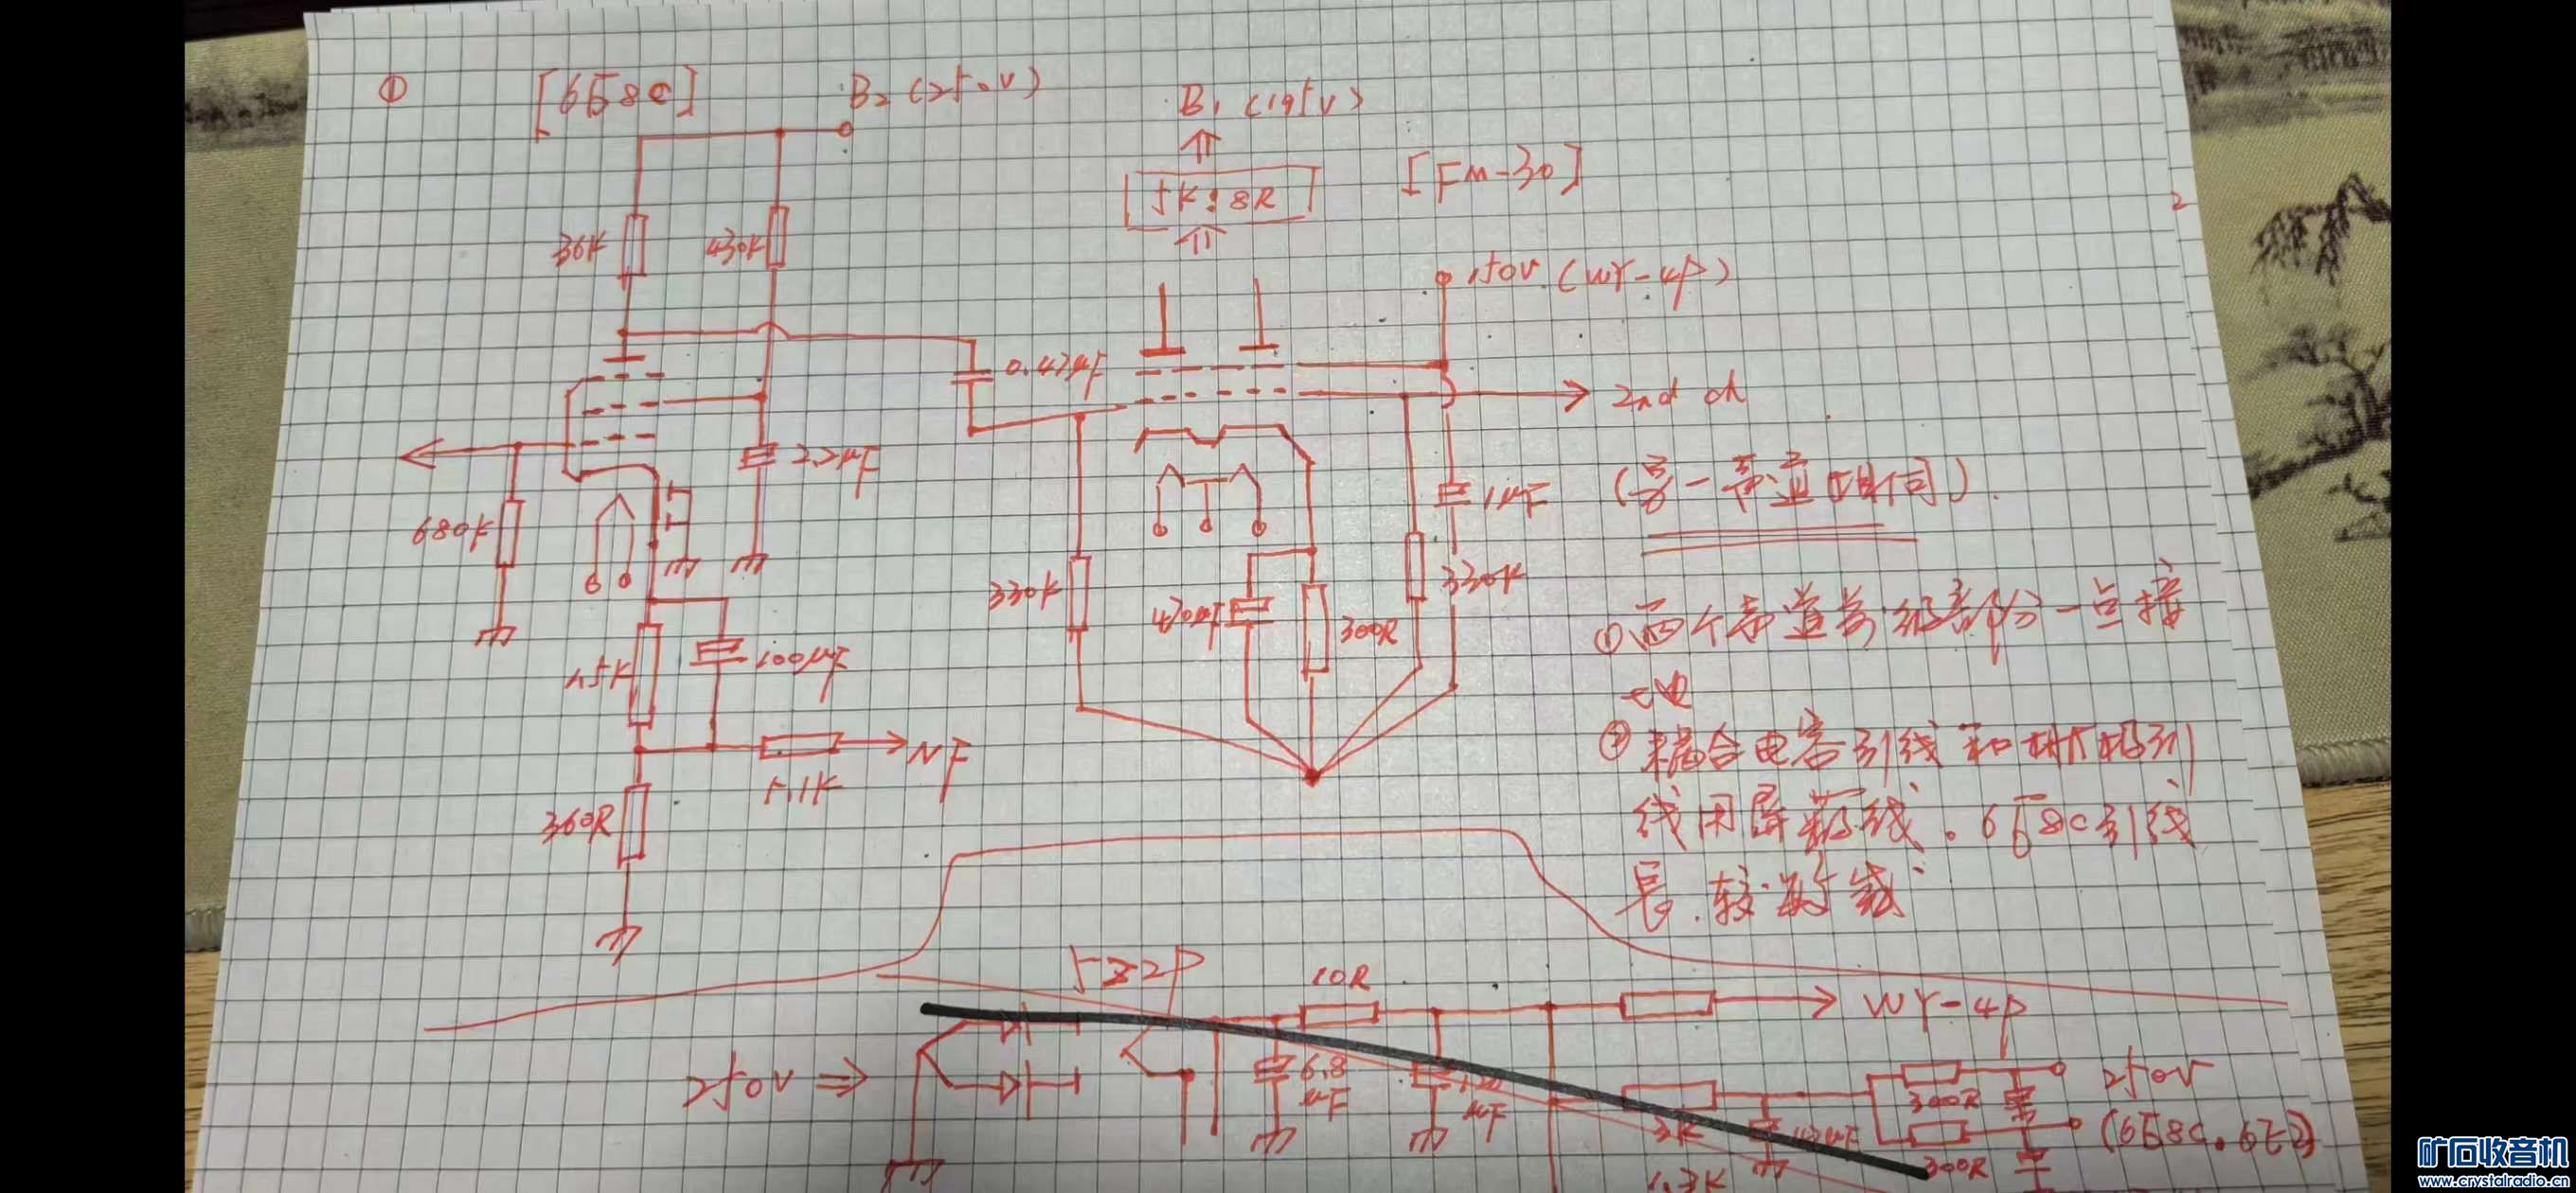 ①
[6Б8C]
B₂ (250V)
B₁ (195V)
5K:8R
[FM-30]
36K
430K
150V (WY-4P)
0.47μF
2nd ch
2.2μF
1μF
680K
330K
470μF
300R
330K
1.5K
100μF
5.1K
NF
360R
①两个声道前级部份一点接
地
②耦合电容引线和栅极引
线用屏蔽线。6Б8C引线
長.较敏感
2
5Z2P
10R
WY-4P
250V
6.8
μF
μF
2K
1.3K
300R
300R
250V
矿石收音机
www.crystalradio.cn